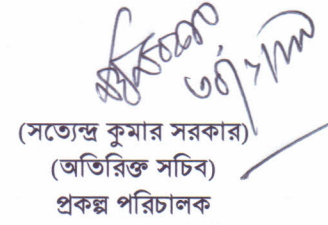 (সত্যেন্দ্র কুমার সরকার)
(অতিরিক্ত সচিব)
প্রকল্প পরিচালক